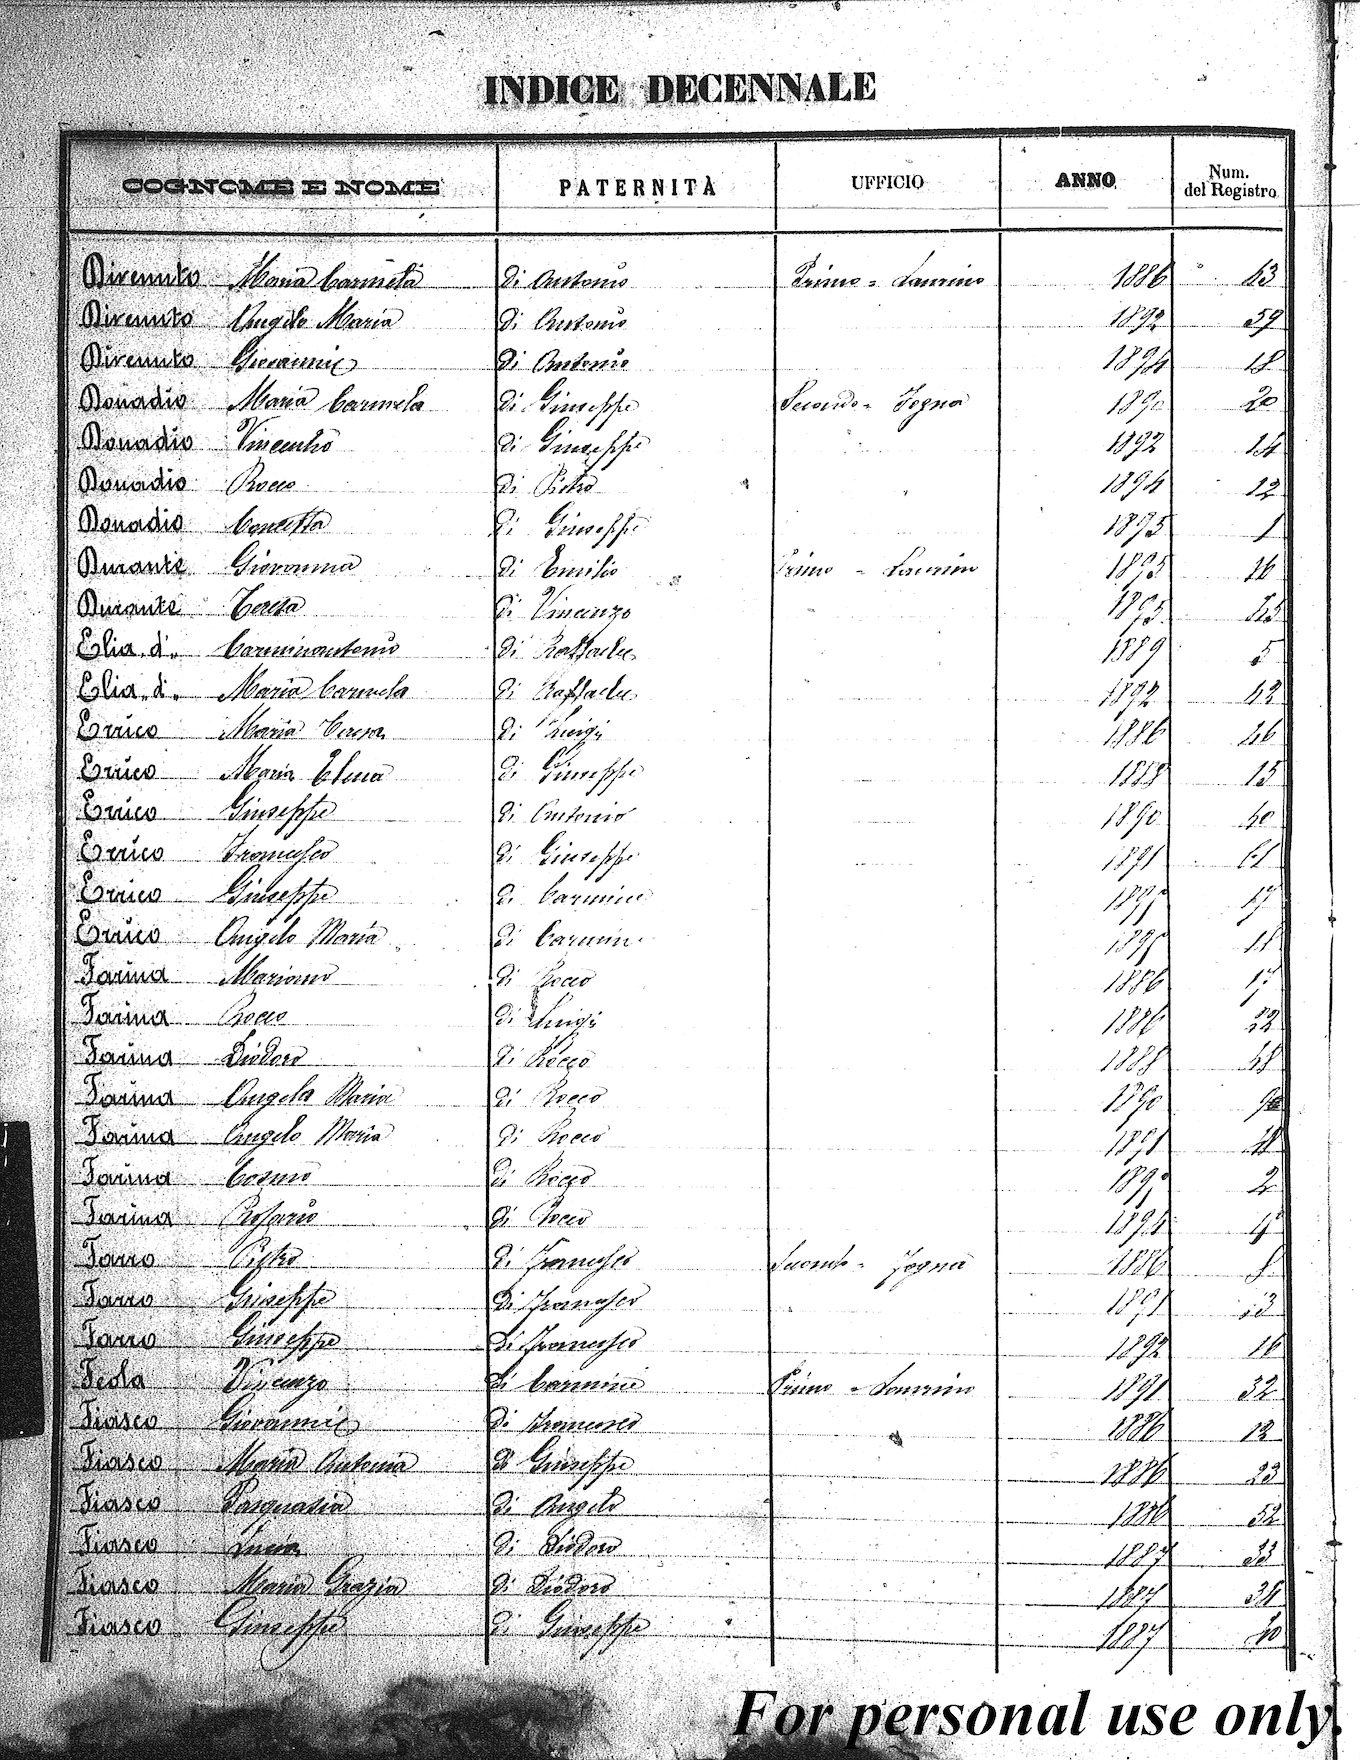 INDICE DECENNALE
COGNOME E NOME PATERNITÀ UFFICIO ANNO Num. del Registro
Divenuto Maria Carmela di Antonio Primo = Laurino 1886 43
Divenuto Angelo Maria di Antonio 1892 59
Divenuto Giovannie di Antonio 1894 18
Donadio Maria Carmela di Giuseppe Secondo = Fogna 1890 20
Donadio Vincenzo di Giuseppe 1892 14
Donadio Rocco di Pietro 1894 12
Donadio Concetta di Giuseppe 1895 1
Durante Giovanna di Emilio Primo = Laurino 1895 26
Durante Teresa di Vincenzo 1895 45
Elia d' Carminantonio di Raffaele 1889 5
Elia d' Maria Carmela di Raffaele 1892 42
Errico Maria Teresa di Luigi 1886 46
Errico Maria Elena di Giuseppe 1888 15
Errico Giuseppe di Antonio 1890 40
Errico Francesco di Giuseppe 1891 61
Errico Giuseppe di Carmine 17
Errico Angelo Maria di Carmine
Farina Mariano di Rocco 1886 17
Farina Rocco di Luigi 1886 22
Farina Diodoro di Rocco 1888 48
Farina Angela Maria di Rocco 1890
Farina Angelo Maria di Rocco 1891
Farina Cosmo di Rocco 2
Farina Rosario di Rocco 1894 4
Farro Pietro di Francesco Secondo = Fogna 1886 8
Farro Giuseppe di Francesco 1891 13
Farro Giuseppe di Francesco 1892 16
Feola Vincenzo di Carmine Primo = Laurino 1891 32
Fiasco Giovannie di Francesco 1886 12
Fiasco Maria Antonia di Giuseppe 1886 23
Fiasco Pasquasia di Angelo 1886 52
Fiasco Lucia di Diodoro 1887 33
Fiasco Maria Grazia di Diodoro 1887 34
Fiasco Giuseppe di Giuseppe 1887 40
For personal use only.